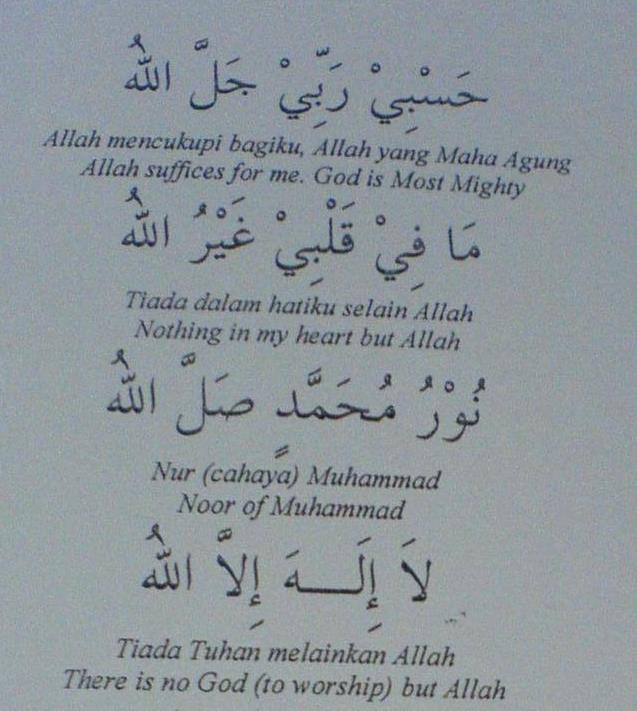 حَسْبِيْ رَبِّيْ جَلَّ اللهُ
Allah mencukupi bagiku, Allah yang Maha Agung
Allah suffices for me. God is Most Mighty
مَا فِيْ قَلْبِيْ غَيْرُ اللهُ
Tiada dalam hatiku selain Allah
Nothing in my heart but Allah
نُوْرُ مُحَمَّدٍ صَلَّ اللهُ
Nur (cahaya) Muhammad
Noor of Muhammad
لاَ إِلَـــهَ إِلاَّ اللهُ
Tiada Tuhan melainkan Allah
There is no God (to worship) but Allah